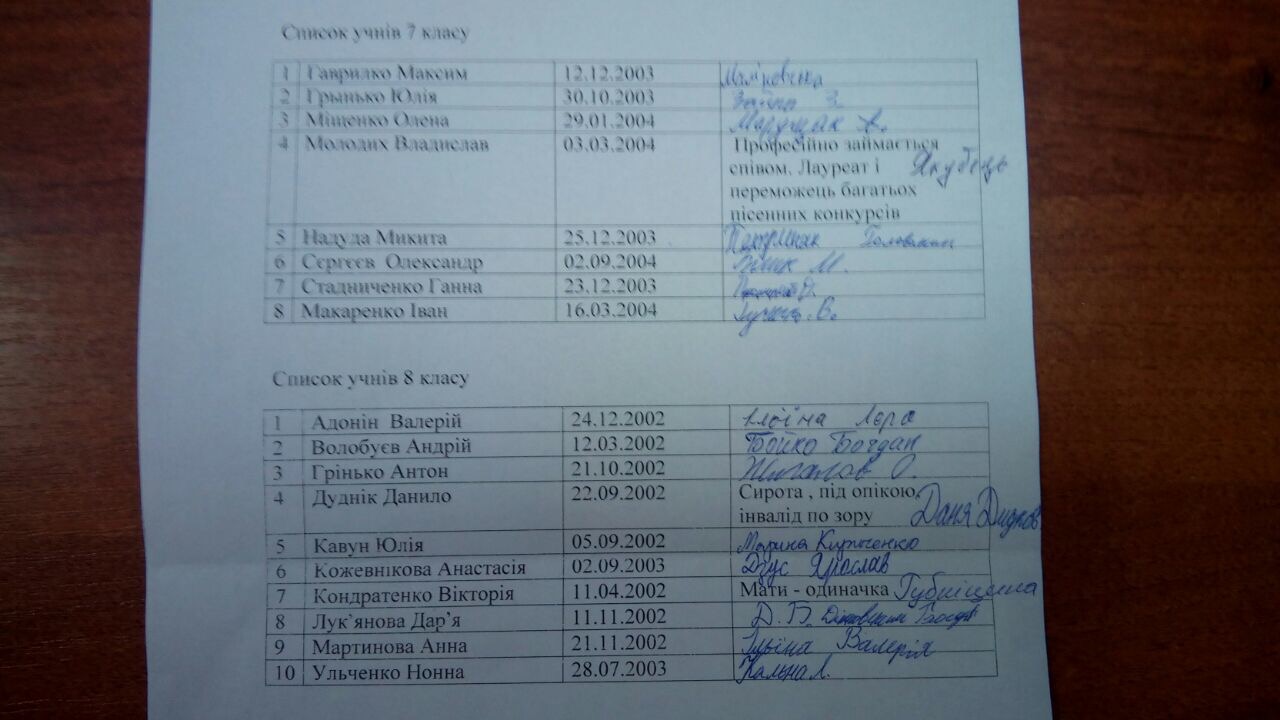 Список учнів 7 класу
1 Гаврилко Максим 12.12.2003
2 Грынько Юлія 30.10.2003
3 Міщенко Олена 29.01.2004 Марущак А.
4 Молодих Владислав 03.03.2004 Професійно займається
співом. Лауреат і Якубець
переможець багатьох
пісенних конкурсів
5 Надуда Микита 25.12.2003
6 Сєргєєв Олександр 02.09.2004 М.
7 Стадниченко Ганна 23.12.2003
8 Макаренко Іван 16.03.2004
Список учнів 8 класу
1 Адонін Валерій 24.12.2002 Лера
2 Волобуєв Андрій 12.03.2002 Бойко Богдан
3 Грінько Антон 21.10.2002 Жигалов О.
4 Дуднік Данило 22.09.2002 Сирота , під опікою,
інвалід по зору Даня
5 Кавун Юлія 05.09.2002 Марина Кириченко
6 Кожевнікова Анастасія 02.09.2003 Дзус Ярослав
7 Кондратенко Вікторія 11.04.2002 Мати - одиначка
8 Лук`янова Дар’я 11.11.2002 Д.В.
9 Мартинова Анна 21.11.2002 Ільїна Валерія
10 Ульченко Нонна 28.07.2003